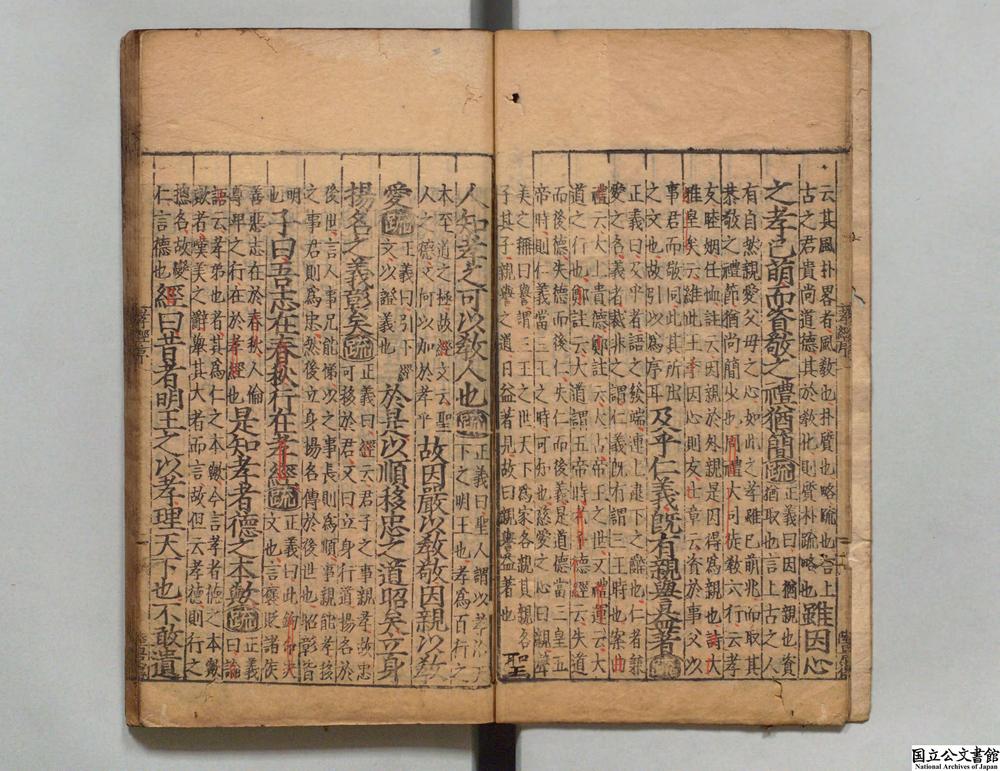 云其風朴畧者風敎也朴質也略疏也言上
古之君貴尚道德其於敎化則質朴疏略也
雖因心
之孝已萌而資敬之禮猶簡疏
正義曰因猶親也資
猶取也言上古之人
有自然親愛父母之心如此之孝雖已萌兆而取其
恭敬之禮節猶尚簡少也周禮大司徒敎六行云孝
友睦婣任恤註云因親於外親是因得爲親也詩大
雅皇矣云維此王季因心則友士章云資於事父以
事君而敬同此其所出
之文也故引以爲序耳
及乎仁義旣有親譽益著疏
正義曰及乎者語之發端連上逮下之辭也仁者兼
愛之名義者裁非之謂仁義旣有謂三王時也案曲
禮云太上貴德鄭註云大上帝王之世又禮運云大
道之行也鄭註云大道謂五帝時老子德經云失道
而後德失德而后仁失仁而後義是道德當三皇五
帝時則仁義當三王之時可知也慈愛之心曰親聲
美之稱曰譽謂三王之世天下爲家各親其親各
子其子親譽之道日益著見故曰親譽益著也
聖
人知孝之可以敎人也疏
正義曰聖人謂以孝治天
下之明王也孝爲百行之
本至道之極故經文云聖
人之德又何以加於孝乎
故因嚴以敎敬因親以敎
愛疏
正義曰引下經
文以證義也
於是以順移忠之道昭矣立身
揚名之義彰矣疏
正義曰經云君子之事親孝故忠
可移於君又曰立身行道揚名於
後世言人事兄能悌以之事長則爲順事親能孝移
之事君則爲忠然後立身揚名傳於後世也昭彰皆
明
也
子曰吾志在春秋行在孝經疏
正義曰此鉤命決
文也言褒貶諸侯
善惡志在於春秋人倫
尊卑之行在於孝經也
是知孝者德之本歟疏
正義
曰論
語云孝弟也者其爲仁之本歟今言孝者德之本歟
歟者嘆美之辭舉其大者而言故但云孝德則行之
摠名故變
仁言德也
經曰昔者明王之以孝理天下也不敢遺
国立公文書館
National Archives of Japan